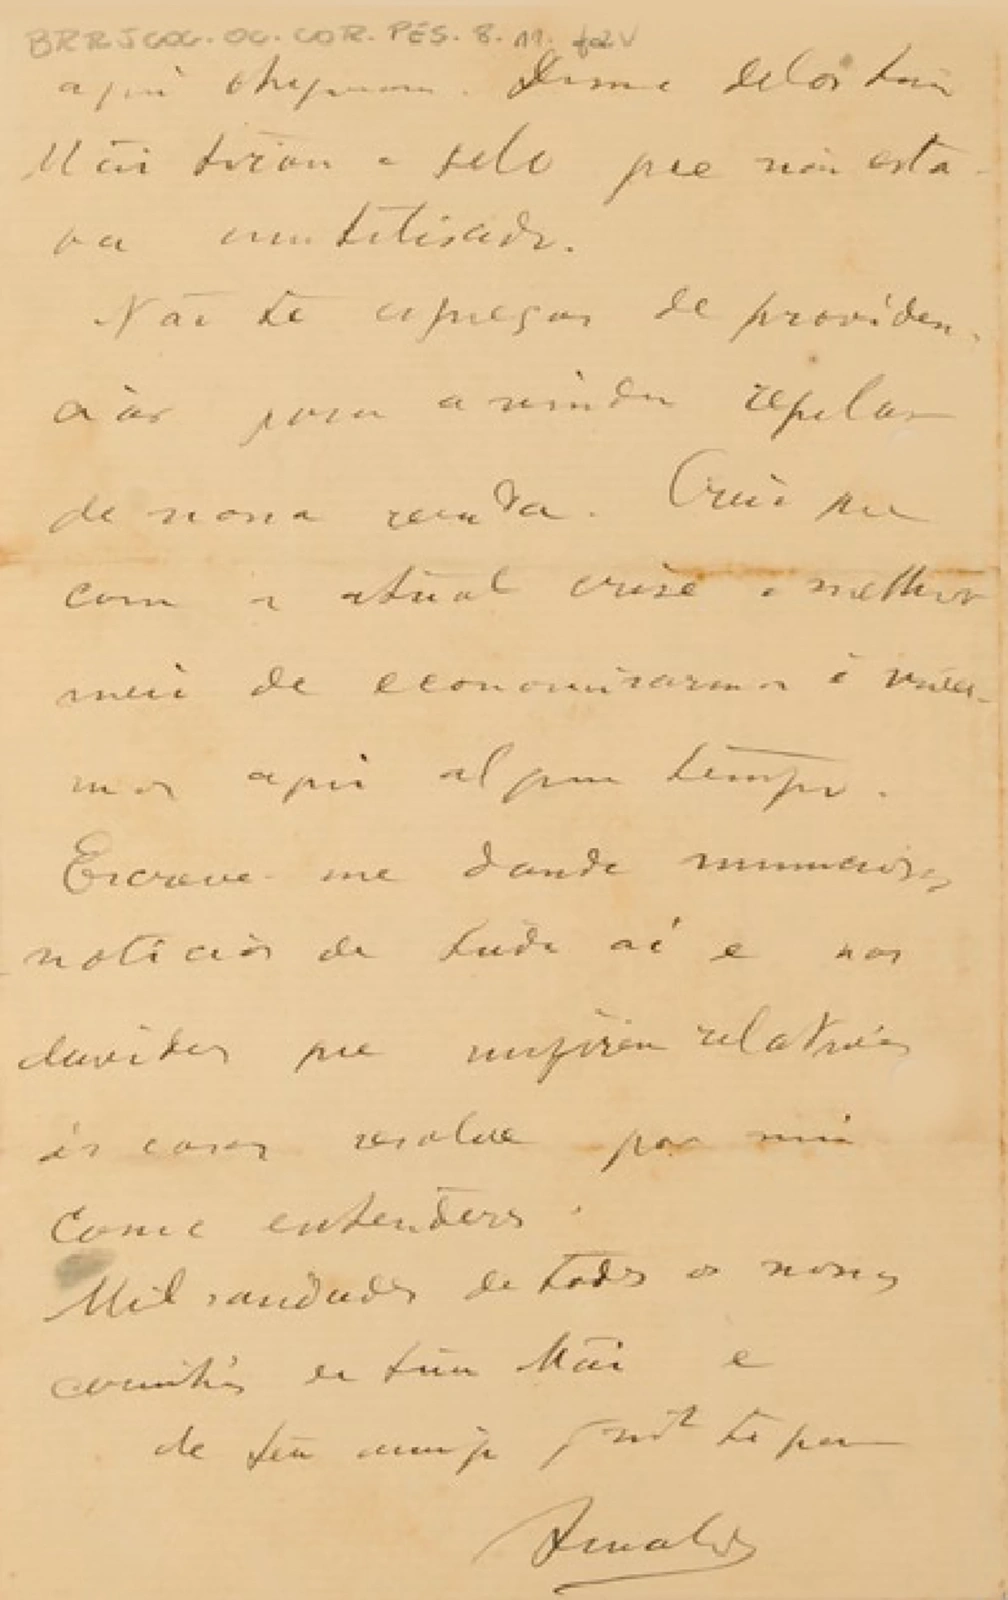 BRRJCOC.OC.COR.PES.8.11. f02v
aqui chegaram. Duma delas tua
Mãi tirou o selo que não esta-
va inutilisado.
Não te esqueças de providen-
ciar para a vinda
de nossa renda. Creio que
com a atual crise o melhor
meio de economisarmos é
mos aqui algum tempo.
Escreve-me dando numerosas
noticias de tudo aí e nas
duvidas que surjirem relativas
ás casas resolve por mim
como entenderes.
Mil saudades de todos os nossos
de tua Mãi e
de teu amigo
Arnaldo